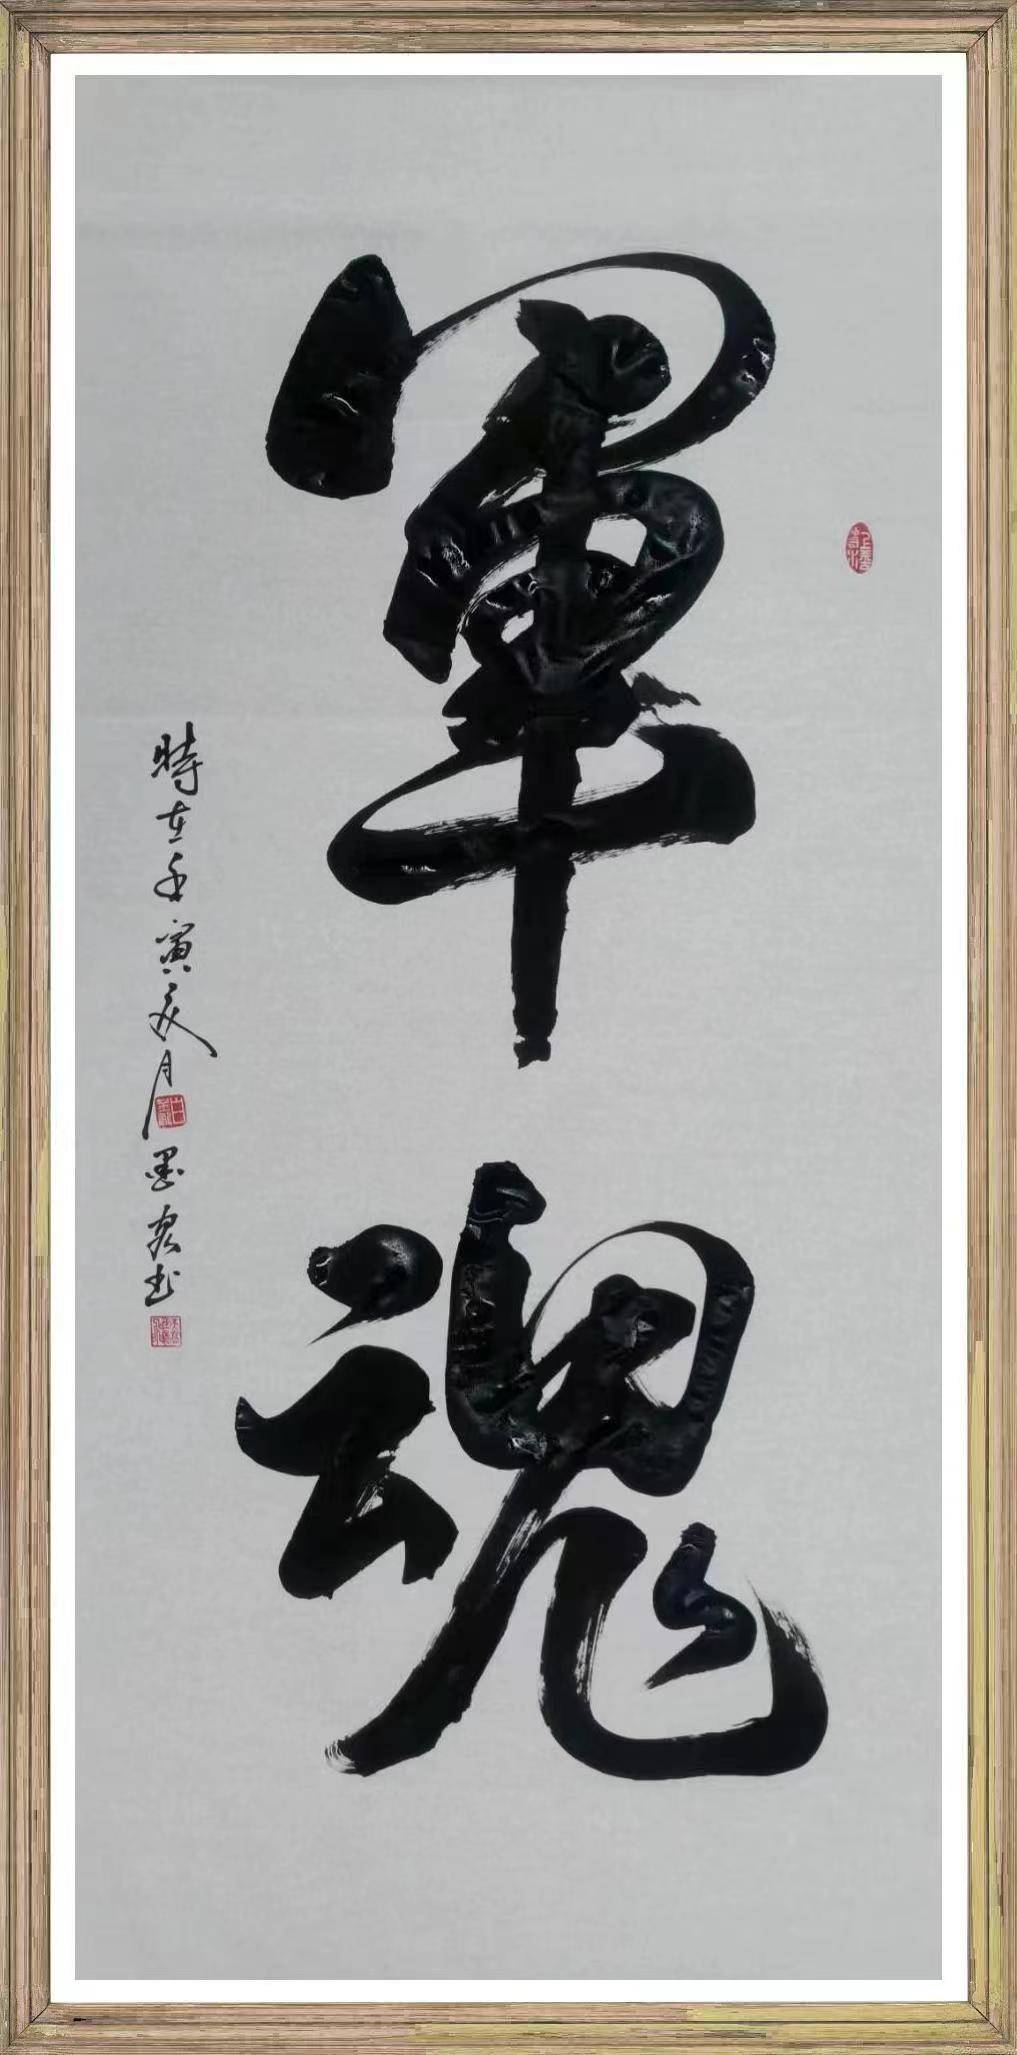 軍魂
時在壬寅亥月墨泉书